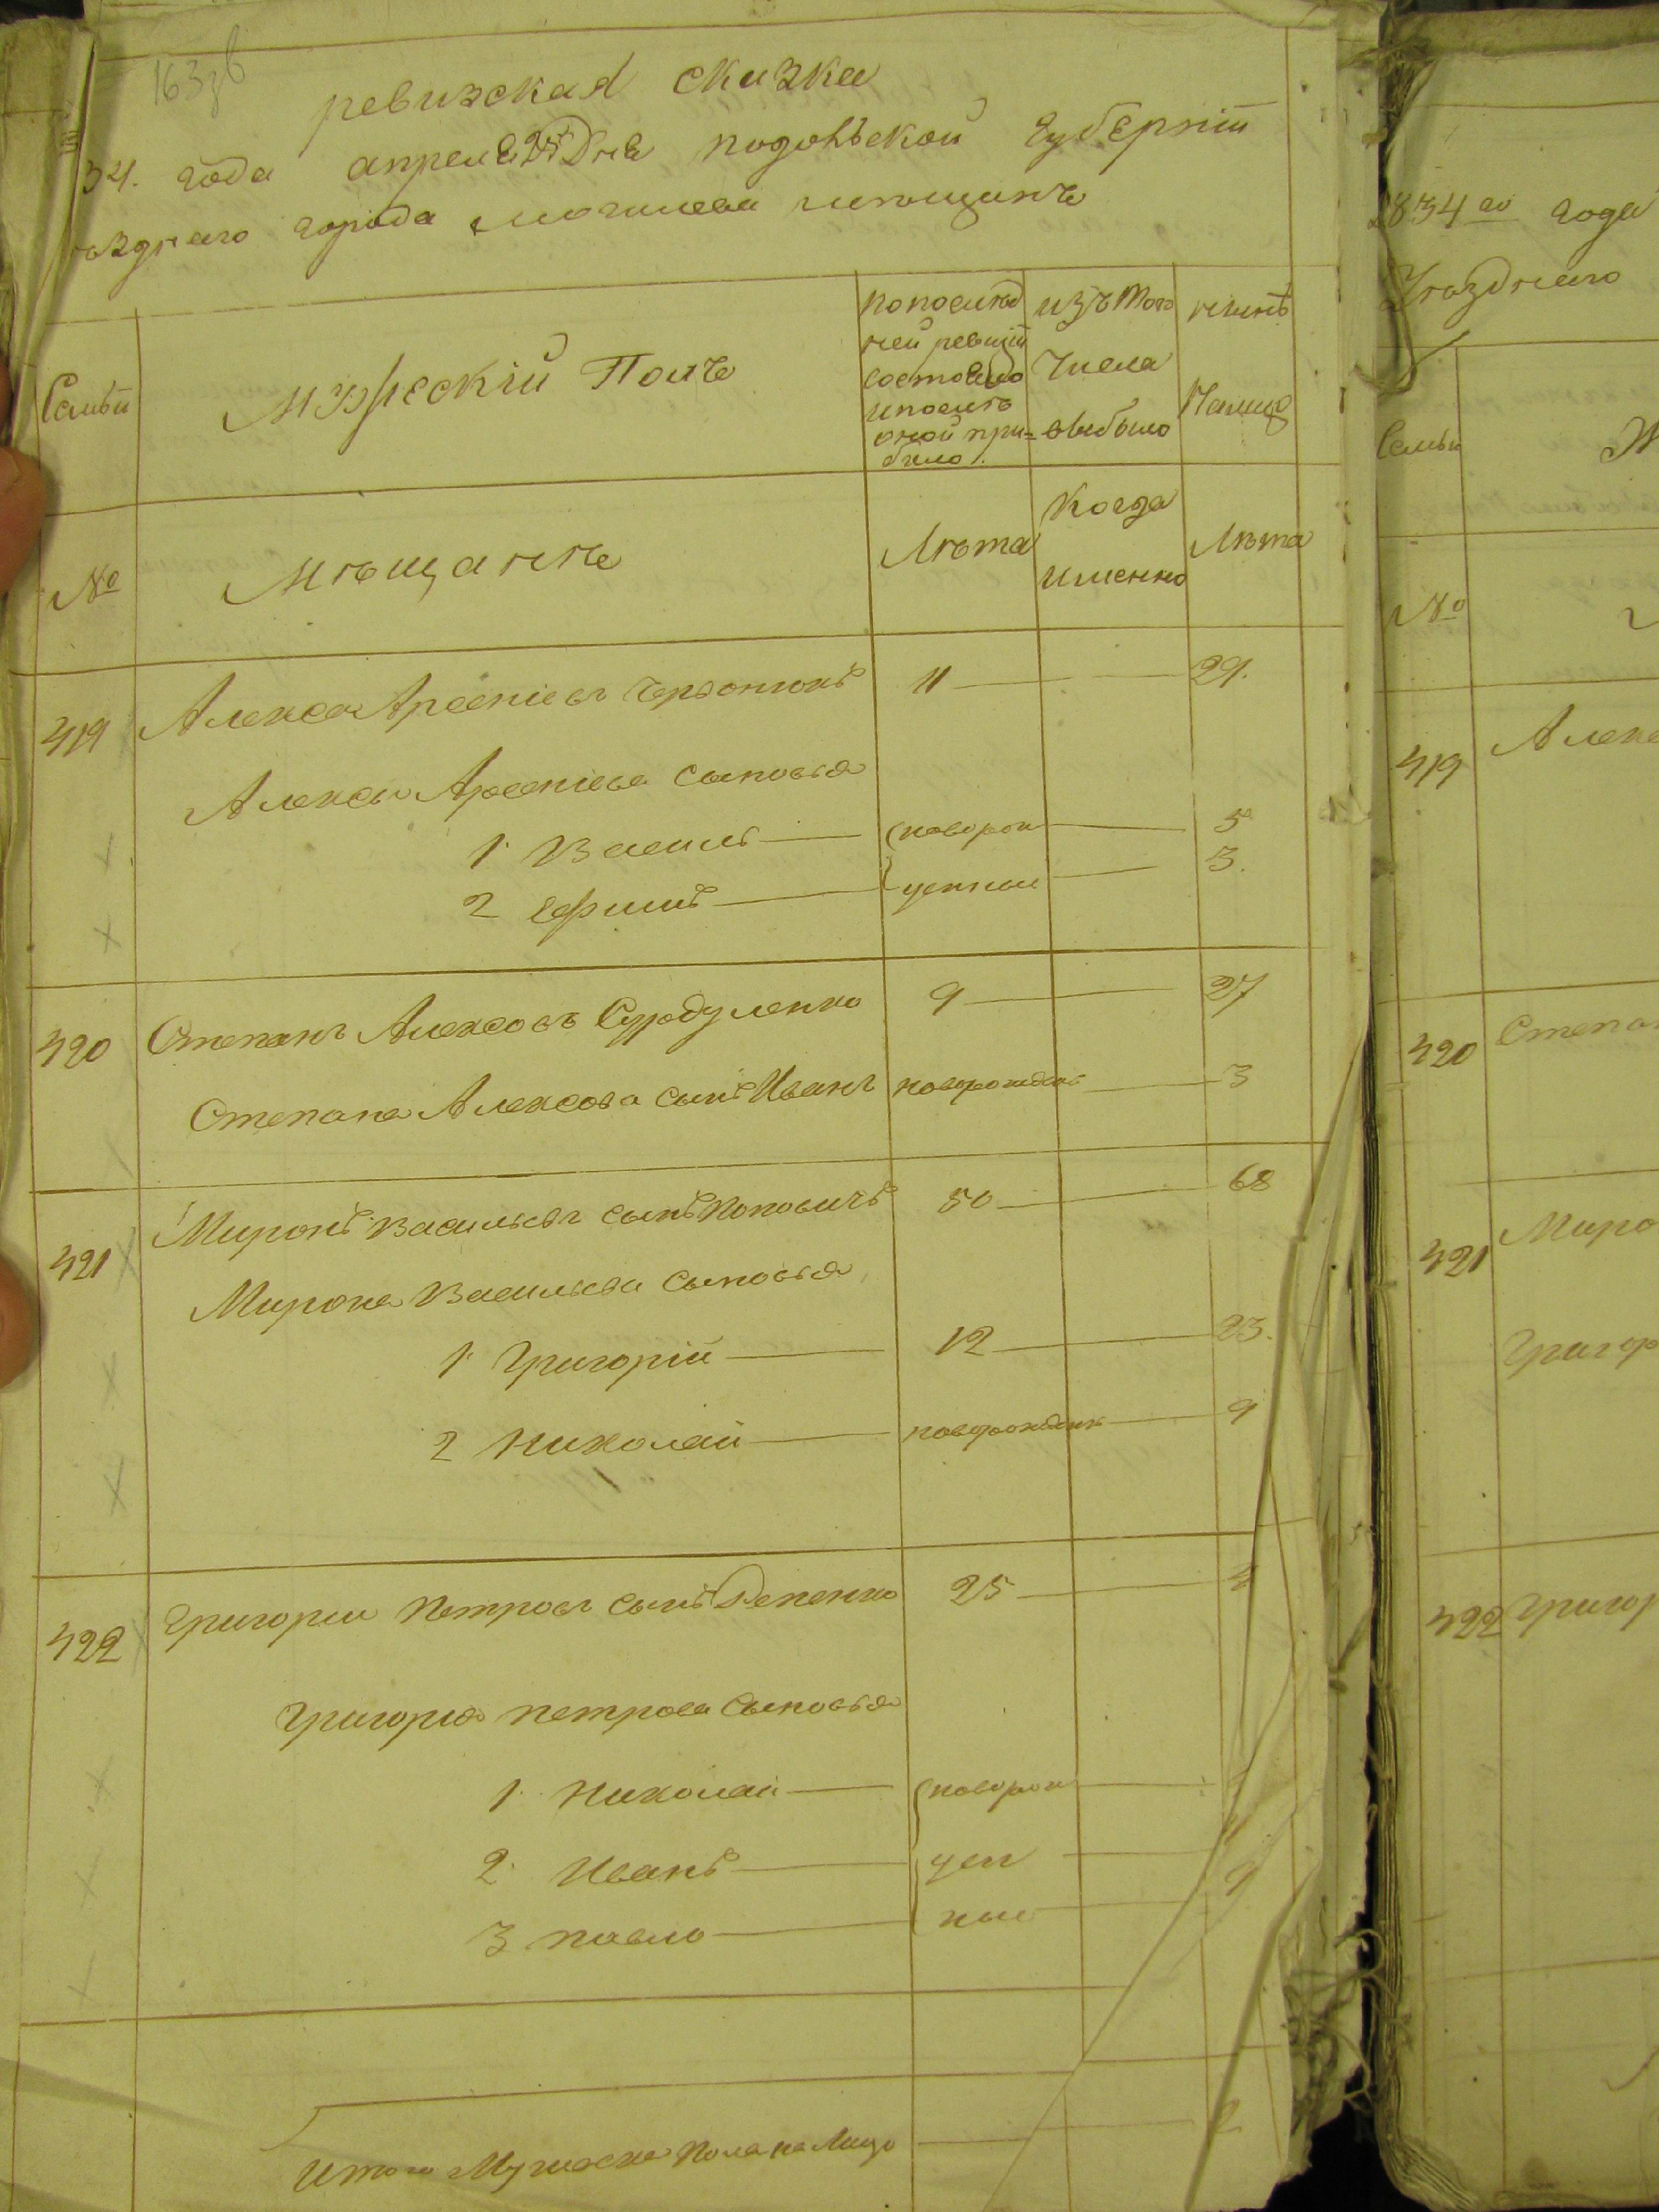 163 зв
ревизская сказка
34. года апреля 25 Дня подольской губернїи
уѣзднаго города Могилева мѣщанъ
Семьи
Мужескїй Полъ
по послѣд
ней ревизїи
состояло
и послѣ
оной при=
было.
изъ того
числа
выбыло
нынѣ
На лицо
№
Мѣщанъ
Лѣта
Когда
именно
Лѣта
419 Алексей Арсенїевъ 11 29.
Алексѣя Арсенїева сыновья
1. Василь новорож 5
2 Ефимъ денные 3.
420 Степанъ Алексовъ 9 27
Степана Алексова сынъ Иванъ новорожденъ 3
421 Миронъ Васильевъ сынъ Поповичъ 50 68
Мирона Васильева сыновья
1. Григорїй 12 23.
2 Николай новорожденъ 9
422 Григории Петровъ сынъ 25
Григория Петрова сыновья
1. Николай новорож
2. Иванъ ден
3 Павло ные
Итого Мужеска Пола на Лицо
1834 го года
Уѣзднаго
Семьи
№
419 Алекс
420 Степан
421 Миро
Григор
422 Григор